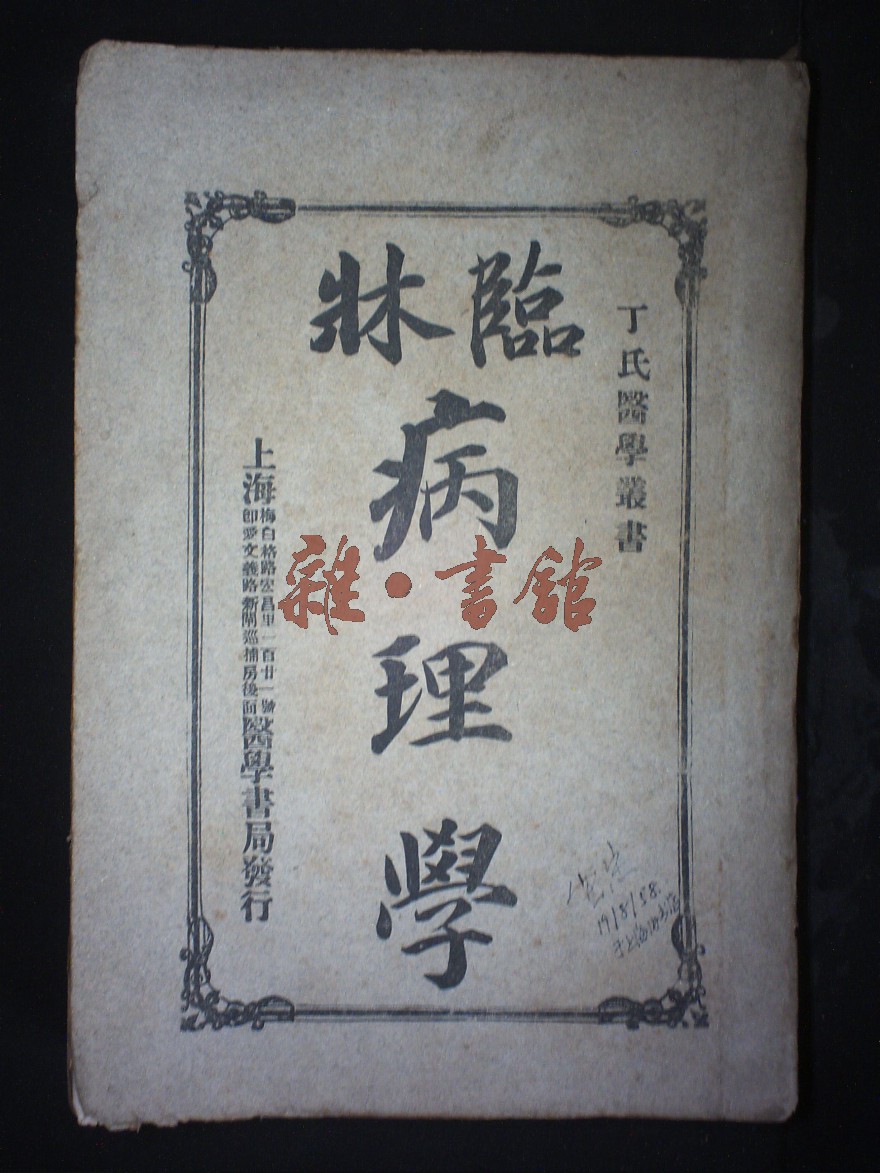 丁氏醫學叢書
臨牀
病理學
上海梅白格路宏昌里一百廿一號即愛文義路新閘巡捕房後面醫學書局發行
雜·書館
19/8/58.